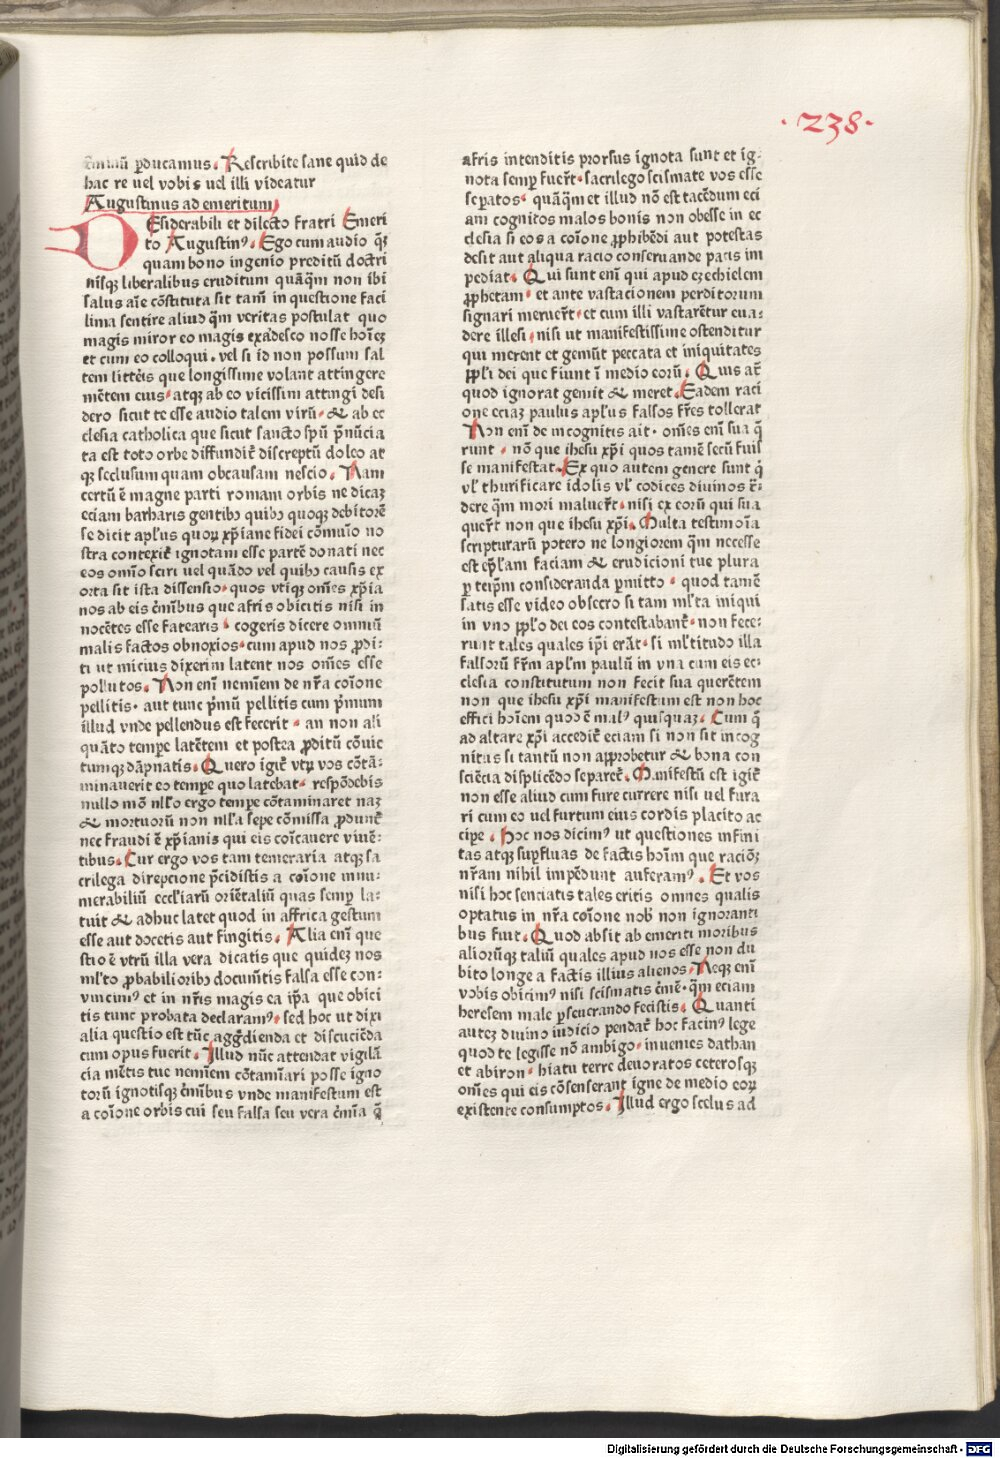 ·238·
ēminū ꝑducamus. Rescribite sane quid de
hac re uel vobis uel illi videatur
Augustinus ad emeritum
DEsiderabili et dilecto fratri Emeri
to Augustinꝰ. Ego cum audio q̄ȝ
quam bono ingenio preditū doctri
nisqȝ liberalibus eruditum quāq̄m non ibi
salus aīe cōstituta sit tam̄ in questione faci
lima sentire aliud q̄m veritas postulat quo
magis miror eo magis exādesco nosse hoīeȝ
et cum eo colloqui. vel si id non possum sal
tem litteīs que longissime volant attingere
mētem eius. atqȝ ab eo vicissim attingi desi
dero sicut te esse audio talem virū. & ab ec
clesia catholica que sicut sancto spū p̄nūcia
ta est toto orbe diffundit̄ discreptū doleo at
qȝ seclusum quam obcausam nescio. Nam
certū ē magne parti romani orbis ne dicaȝ
eciam barbaris gentibꝫ quibꝫ quoqȝ debitorē
se dicit apl'us quoꝝ xp̄iane fidei cōmuīo no
stra contexit̄ ignotam esse partē donati nec
eos omīo sciri uel quādo vel quibꝫ causis ex
orta sit ista dissensio. quos vtiqȝ om̄es xp̄ia
nos ab eis cr̄ībus que afris obicitis nisi in
nocētes esse fatearis. cogeris dicere omniū
malis factos obnoxios. cum apud nos ꝓdi
ti ut micius dixerim latent nos om̄es esse
pollutos. Non enī nemīem de nr̄a coīone
pellitis. aut tunc p̄mū pellitis cum p̄mum
illud vnde pellendus est fecerit. an non ali
quāto tempe latētem et postea ꝓditū cōuic
tumqȝ dāpnatis. Quero igit̄ vtꝝ vos cōtā:
minauerit eo tempe quo latebat. respōdebis
nullo mō nll'o ergo tempe cōtaminaret naȝ
& mortuorū non nll'a sepe cōmissa ꝓdunt̄
nec fraudi ē xp̄ianis qui eis coīcauere viuē:
tibus. Cur ergo vos tam temeraria atqȝ sa
crilega direpcione p̄cidistis a coīone innu:
merabiliū eccl'iarū oriētaliū quas semꝑ la:
tuit & adhuc latet quod in affrica gestum
esse aut docetis aut fingitis. Alia enī que
stio ē vtrū illa vera dicatis que quideȝ nos
ml'to ꝓbabilioribꝫ docum̄tis falsa esse con:
vincimꝰ et in nr̄is magis ea ip̄a que obici
tis tunc probata declaramꝰ. sed hoc ut dixi
alia questio est tūc agg̃dienda et discuciēda
cum opus fuerit. Illud nūc attendat vigilā
cia mētis tue nemīem cōtamīari posse igno
torū ignotisqȝ cr̄ībus vnde manifestum est
a coīone orbis cui seu falsa seu vera cr̄mīa q̄
afris intenditis prorsus ignota sunt et ig:
nota semꝑ fuer̄t. sacrilego scismate vos esse
seꝑatos. quāq̄m et illud nō est tacēdum eci
am cognitos malos bonis non obesse in ec
clesia si eos a coīone ꝓhibēdi aut potestas
desit aut aliqua racio conseruande pacis im
pediat. Qui sunt enī qui apud ezechielem
ꝓphetam. et ante vastacionem perditorum
signari meruer̄t. et cum illi vastarētur eua:
dere illesi. nisi ut manifestissime ostenditur
qui merent et gemūt peccata et iniquitates
ppl'i dei que fiunt ī medio eorū. Quis at̄
quod ignorat gemit & meret. Eadem raci
one eciaȝ paulus apl'us falsos fr̄es tollerat
Non enī de incognitis ait. om̄es enī sua q̄
runt. nō que ihesu xp̄i quos tamē secū fuis
se manifestat. Ex quo autem genere sunt q̄
vl' thurificare idolis vl' codices diuinos tr̄:
dere q̄m mori maluer̄t. nisi ex eorū qui sua
quer̄t non que ihesu xp̄i. Multa testimoīa
scripturarū potero ne longiorem q̄m necesse
est epl'am faciam & erudicioni tue plura
ꝑ teip̄m consideranda p̄mitto. quod tamē
satis esse video obsecro si tam ml'ta iniqui
in vno ppl'o dei eos contestabant̄. non fece:
runt tales quales ip̄i erāt. si ml'titudo illa
falsorū fr̄m apl'm paulū in vna cum eis ec:
clesia constitutum non fecit sua querētem
non que ihesu xp̄i manifestum est non hoc
effici hoīem quod ē malꝰ quisquaȝ. Cum q̄
ad altare xp̄i accedit̄ eciam si non sit incog
nitus si tantū non approbetur & bona con
sciēcia displicēdo separet̄. Manifestū est igit̄
non esse aliud cum fure currere nisi uel fura
ri cum eo uel furtum eius cordis placito ac
cipe. Hoc nos dicimꝰ ut questiones infini
tas atqȝ suꝑfluas de factis hoīm que racioȝ
nr̄am nihil impēdunt auferamꝰ. Et vos
nisi hoc senciatis tales eritis omnes qualis
optatus in nr̄a coīone nob' non ignoranti
bus fuit. Quod absit ab emeriti moribus
aliorūqȝ taliū quales apud nos esse non du
bito longe a factis illius alienos. Neqȝ enī
vobis obicimꝰ nisi scismatis cr̄mē. q̄m eciam
heresem male ꝑseuerando fecistis. Quanti
auteȝ diuino iudicio pendat̄ hoc facinꝰ lege
quod te legisse nō ambigo. inuenies dathan
et abiron. hiatu terre deuoratos ceterosqȝ
om̄es qui eis cōsenserant igne de medio eoꝝ
existente consumptos. Illud ergo scelus ad
Digitalisierung gefördert durch die Deutsche Forschungsgemeinschaft · DFG